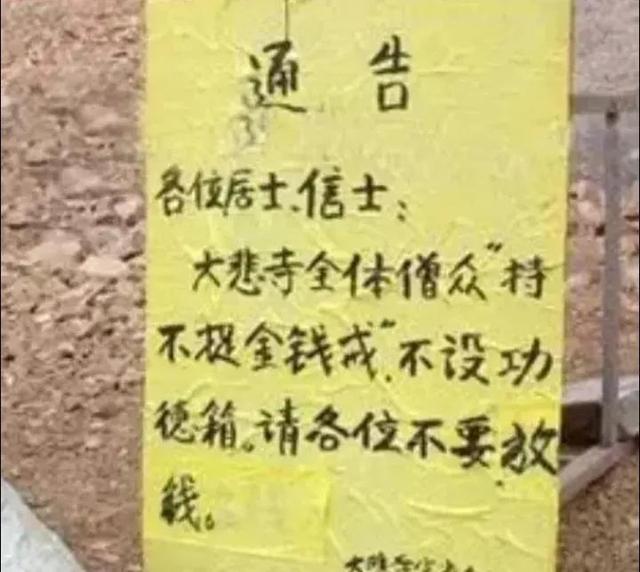 通告
各位居士、信士：
大悲寺全体僧众“持
不捉金钱戒”，不设功
德箱。请各位不要放
钱。
大悲寺